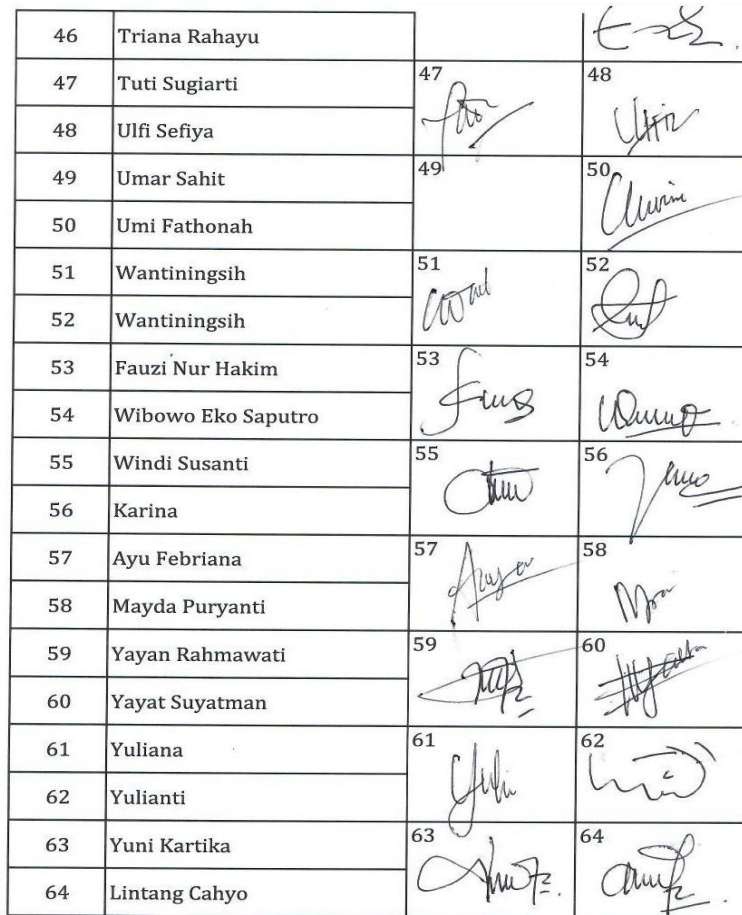 46 Triana Rahayu
47 Tuti Sugiarti 47 48
48 Ulfi Sefiya
49 Umar Sahit 49 50
50 Umi Fathonah
51 Wantiningsih 51 52
52 Wantiningsih
53 Fauzi Nur Hakim 53 54
54 Wibowo Eko Saputro
55 Windi Susanti 55 56
56 Karina
57 Ayu Febriana 57 58
58 Mayda Puryanti
59 Yayan Rahmawati 59 60
60 Yayat Suyatman
61 Yuliana 61 62
62 Yulianti
63 Yuni Kartika 63 64
64 Lintang Cahyo